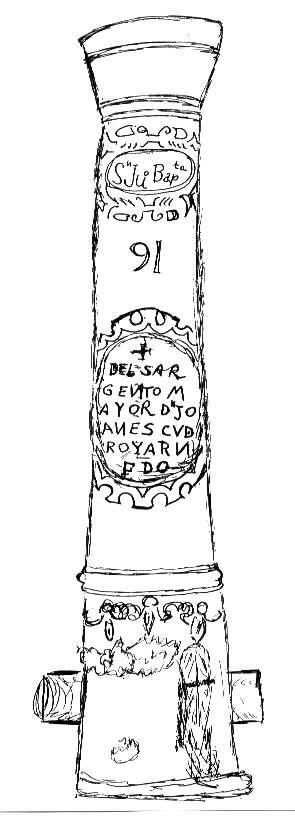 Sⁿ Jụ Bapᵗᵃ
91
DEL SAR
GENTO M
AYOR DⁿJO
ANES CVD
ROYARN
EDO